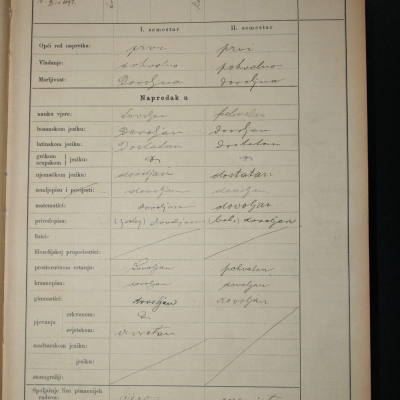 I. semestar II. semestar
Opći red napretka: prvi prvi
Vladanje: pohvalno pohvalno
Marljivost: Dovoljna dovoljna
Napredak u
nauku vjere: dovoljan pohvalan
bosanskom jeziku: Dovoljan dovoljan
latinskom jeziku: Dostatan Dostatan
grčkom
arapskom
jeziku:
njemačkom jeziku: dovoljan dostatan
zemljopisu i povijesti: dovoljan dovoljan
matematici: dovoljan dovoljan
prirodopisu: dovoljan dovoljan
fizici:
filozofijskoj propedeutici:
prostoručnom crtanju: Dovoljan pohvalan
krasnopisu: dovoljan dovoljan
gimnastici: dovoljan dovoljan
pjevanju
crkvenom:
svjetskom:
mađarskom jeziku:
jeziku:
stenografiji:
Spoljašnje lice pismenijeh
radova: